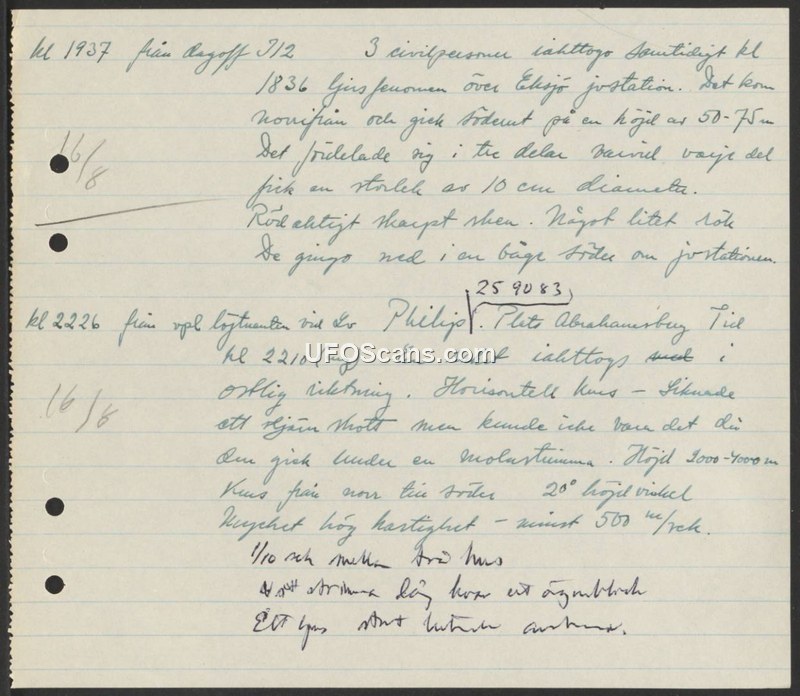 kl 1937 från dagoff I12 3 civilpersoner iakttogo samtidigt kl
1836 ljusfenomen över Eksjö jvstation. Det kom
norrifrån och gick söderut på en höjd av 50-75 m
16/8
Det fördelade sig i tre delar varvid varje del
fick en storlek av 10 cm diameter.
Rödaktigt skarpt sken. Något litet rök
De gingo ned i en båge söder om jvstationen.
259083
kl 2226 från vpl löjtnanten vid Lv Philips. Plats Abrahamsberg Tid
kl 2210 iakttogs i
UFOScans.com
ostlig riktning. Horisontell kurs - Liknade
16/8
ett stjärnskott men kunde icke vara det då
den gick under en molnstrimma. Höjd 2000-4000 m
Kurs från norr till söder 20° höjdvinkel
Mycket hög hastighet - minst 500 m/sek.
1/10 sek mellan två hus
strimma låg kvar ett ögonblick
Ett ljus